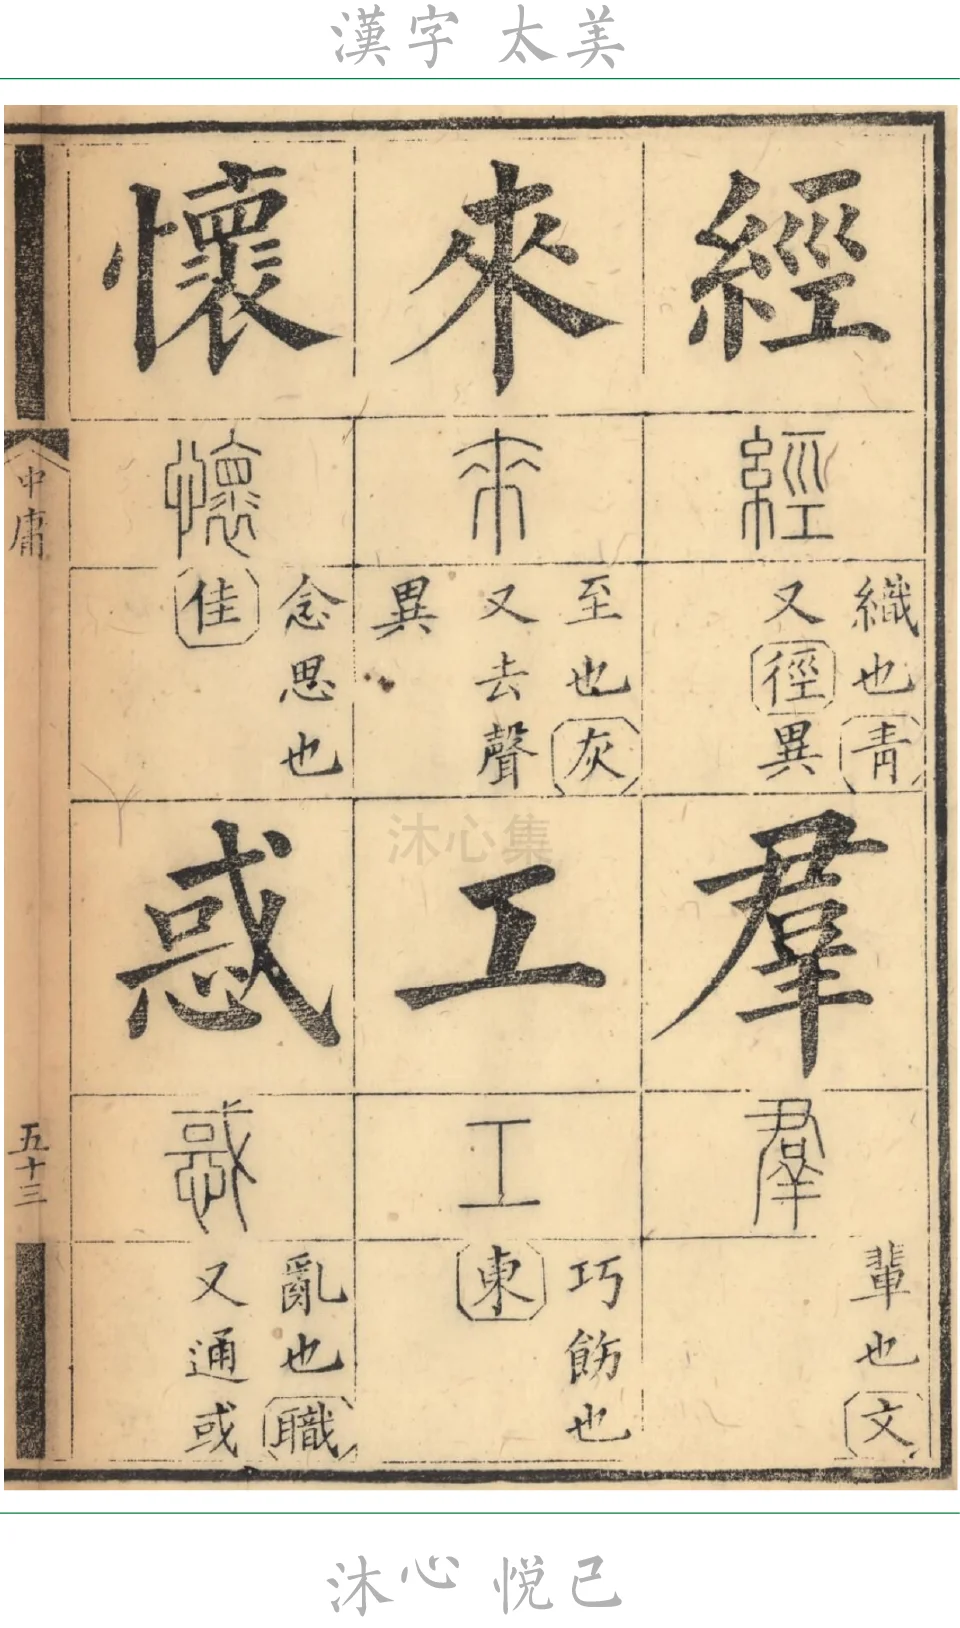 漢字 太美
經
經
織也青
又徑異
來
來
至也灰
又去聲
異
懷
懷
念思也
佳
羣
羣
輩也文
工
工
巧飭也
東
惑
惑
亂也職
又通或
中庸
五十三
沐心集
沐心 悦己